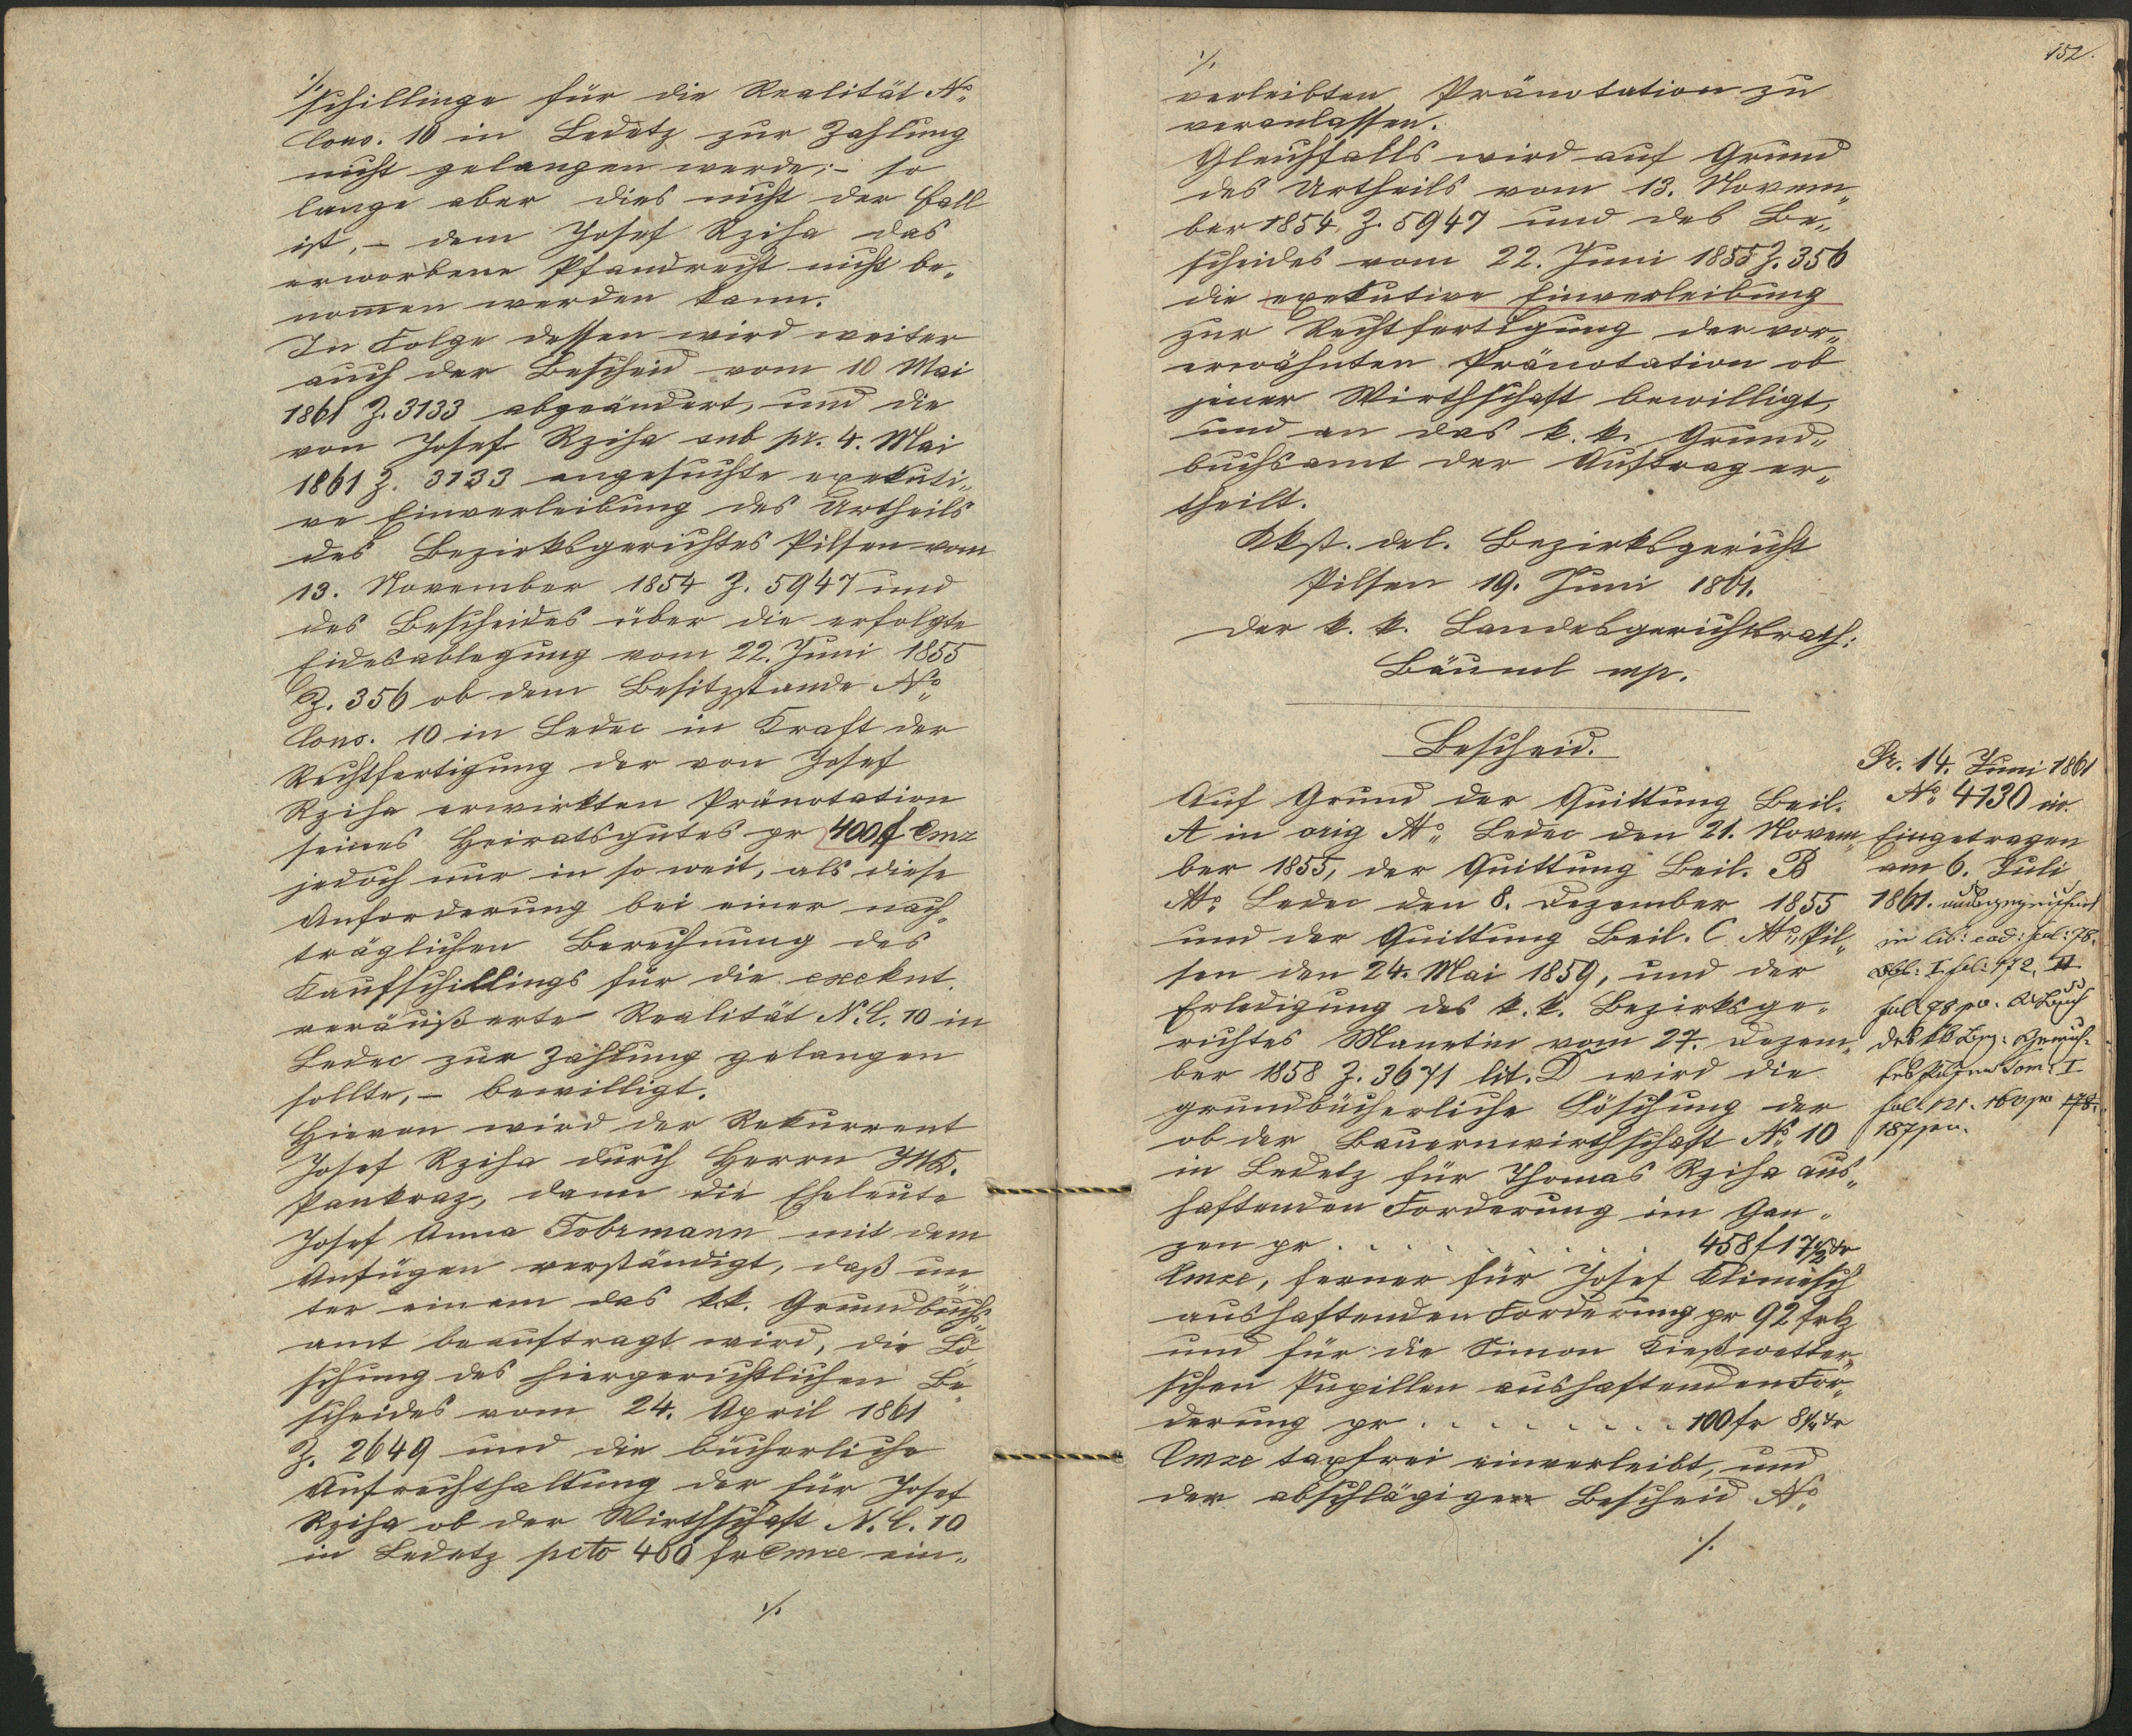 ./.
schillinge für die Realität No
Cons. 10 in Ledetz zur Zahlung
nicht gelangen werde; – so
lange aber dies nicht der Fall
ist, – dem Josef Rziha das
erworbene Pfandrecht nicht be„
nom̅en werden kann.
In Folge dessen wird weiter
auch der Bescheid vom 10 Mai
1861 Z. 3133 abgeändert, und die
von Josef Rziha sub pr. 4. Mai
1861 Z. 3133 angesuchte exekuti„
ve Einverleibung des Urtheils
des Bezirksgerichtes Pilsen vom
13. November 1854 Z. 5947 und
des Bescheides über die erfolgte
Eidesablegung vom 22. Juni 1855
Z. 356 ob dem Besitzstande No
Cons. 10 in Ledec in Kraft der
Rechtfertigung der von Josef
Rziha erwirkten Pränotation
seines Heiratsgutes pr 400 f Cmz
jedoch nur in so weit, als diese
Anforderung bei einer nach„
träglichen Berechnung des
Kaufschillings für die exekut.
veräußerte Realität N. C. 10 in
Ledec zur Zahlung gelangen
sollte, – bewilligt.
Hievon wird der Rekurrent
Josef Rziha durch Herrn
Pankraz, dann die Eheleute
Josef Anna Fobrmann mit dem
Anfügen verständigt, daß un„
ter einem das k. k. Grundbuchs„
amt beauftragt wird, die Lö„
schung des hiergerichtlichen Be„
scheides vom 24. April 1861
Z. 2649 und die bücherliche
Aufrechthaltung der für Josef
Rziha ob der Wirthschaft N. C. 10
in Ledetz pcto 400 fr Cmze ein„
./.
152.
./.
verleibten Pränotation zu
veranlassen.
Gleichfalls wird auf Grund
des Urtheils vom 13. Novem„
ber 1854, Z. 5947 und des Be„
scheides vom 22. Juni 1855 Z. 356
die exekutive Einverleibung
zur Rechtfertigung der vor„
erwähnten Pränotation ob
jener Wirthschaft bewilligt,
und an das k. k. Grund„
buchsamt der Auftrag er„
theilt.
Kkst. del. Bezirksgericht
Pilsen 19. Juni 1861.
Der k. k. Landesgerichtsrath:
Bäuml mp.
Bescheid.
Auf Grund der Quittung Beil.
A in orig dto Ledec den 21. Novem„
ber 1855, der Quittung Beil. B
dto Ledec den 8. Dezember 1855
und der Quittung Beil. C dto Pil„
sen den 24. Mai 1859, und der
Erledigung des k. k. Bezirksge„
richtes Manetin vom 27. Dezem„
ber 1858 Z. 3671 lit. D wird die
grundbücherliche Löschung der
ob der Bauernwirthschaft No 10
in Ledetz für Thomas Rziha aus„
haftenden Forderung im Gan„
zen pr . . . . . . . . 458 f 17 1/2 kr
Cmze, ferner für Josef Klimesch
aushaftenden Forderung pr 92 f
und für die Simon Kießwetter„
schen Pupillen aushaftenden For„
derung pr . . . . . . . . 100 fr 8 1/4 kr
Cmze taxfrei einverleibt, und
der abschlägige Bescheid No
./.
Pr. 14. Juni 1861
No 4130 civ.
Eingetragen
am 6. Juli
1861.
in lib: eod: fol: 78.
I. fol: 472, II
fol 78
Tom. I
fol 121. 160 pv 178.
187 pv.